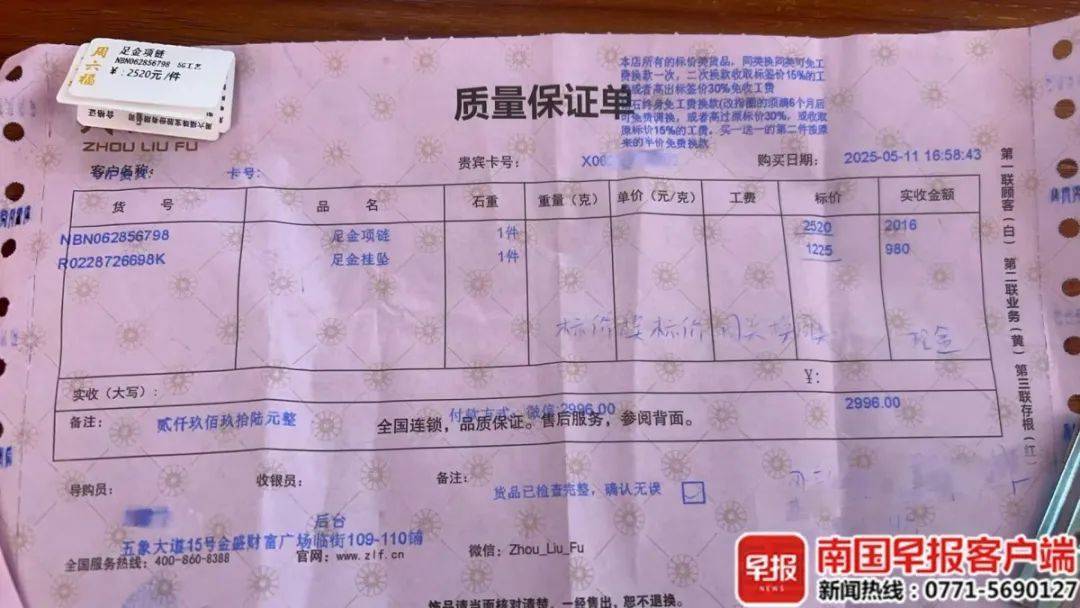 周六福
足金项链
NBN062856798 5G工艺
￥：2520元/件
合格证
周六福珠宝股份有限公司
ZHOU LIU FU
质量保证单
本店所有的标价类货品，同类换同类可免工
费换款一次，二次换款收取标签价15%的工
费或者高出标签价30%免收工费
石终身免工费换款(改指圈的须满6个月后
可免费调换，或者高过原标价30%，或收取
原标价15%的工费，买一送一的第二件按原
来的单价免费换款
客户名称：
卡号：
贵宾卡号：
购买日期：
2025-05-11 16:58:43
货 号
品 名
石重
重量（克）
单价（元/克）
工费
标价
实收金额
NBN062856798 足金项链 1件 2520 2016
R0228726698K 足金挂坠 1件 1225 980
标价换标价 同类换类
现金
￥：
实收（大写）：
2996.00
备注：
贰仟玖佰玖拾陆元整
付款方式：微信2996.00
全国连锁，品质保证。售后服务，参阅背面。
导购员：
收银员：
备注：
货品已检查完整，确认无误
后台
五象大道15号金盛财富广场临街109-110铺
全国服务热线：400-860-8388
官网：www.zlf.cn
微信：Zhou_Liu_Fu
饰品请当面核对清楚，一经售出，恕不退换。
第一联顾客（白）第二联业务（黄）第三联存根（红）
早报
NEWS
南国早报客户端
新闻热线：0771-5690127